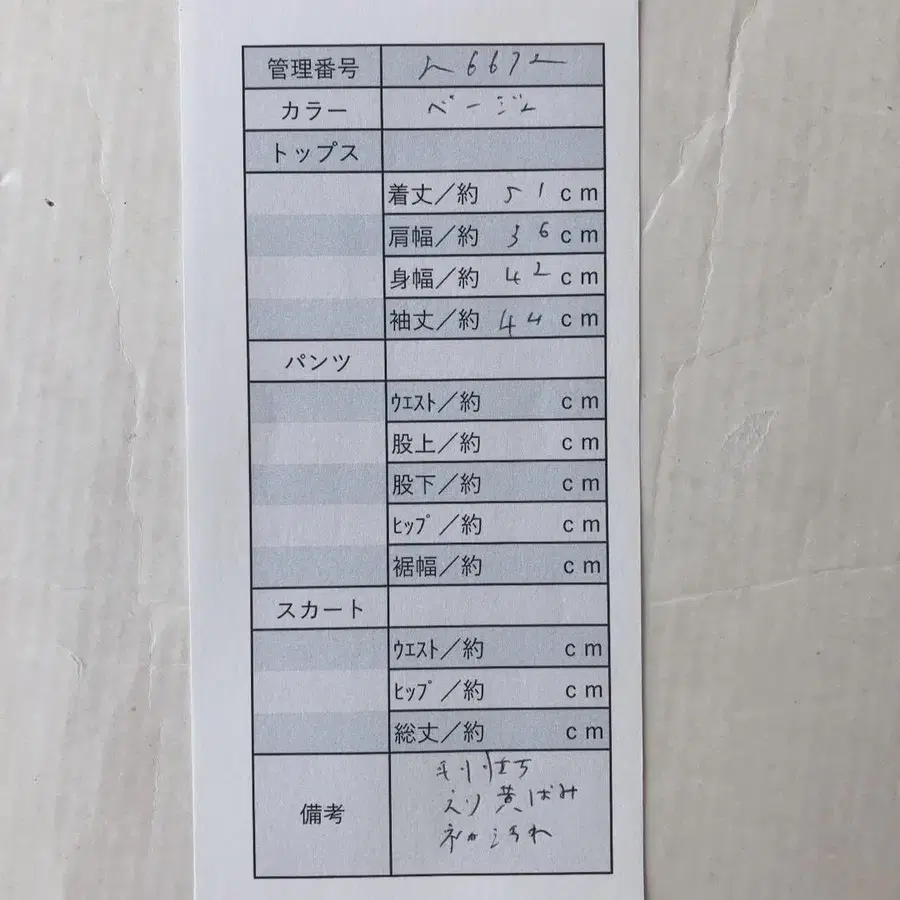 管理番号 6672
カラー ベージュ
トップス
着丈／約 51 cm
肩幅／約 36 cm
身幅／約 42 cm
袖丈／約 44 cm
パンツ
ｳｴｽﾄ／約 cm
股上／約 cm
股下／約 cm
ﾋｯﾌﾟ／約 cm
裾幅／約 cm
スカート
ｳｴｽﾄ／約 cm
ﾋｯﾌﾟ／約 cm
総丈／約 cm
備考
毛羽立ち
えり黄ばみ
袖汚れ